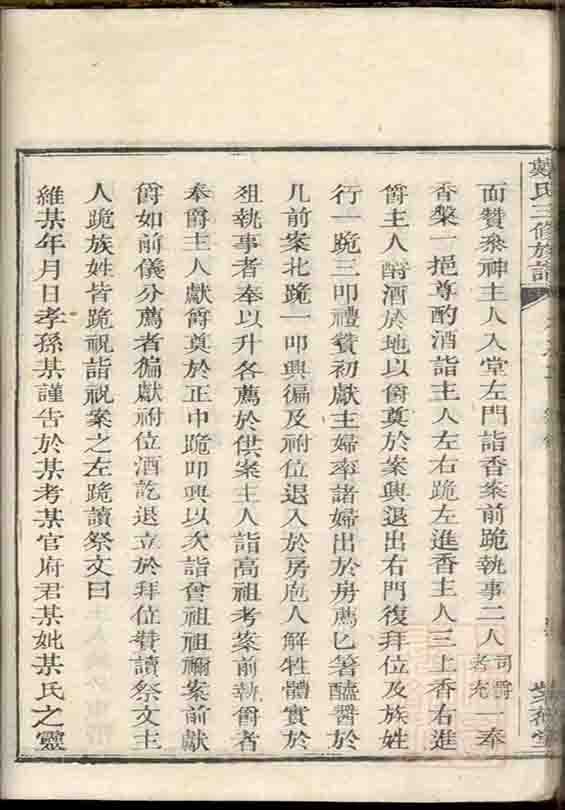 戴氏三修族譜
面贊叅神主人入堂左門詣香案前跪執事二人司爵者充一奉
香槃一挹尊酌酒詣主人左右跪左進香主人三上香右進
爵主人酹酒於地以爵奠於案興退出右門復拜位及族姓
行一跪三叩禮贊初獻主婦率諸婦出於房薦匕箸醯醬於
几前案北跪一叩興徧及祔位退入於房庖人解牲體實於
俎執事者奉以升各薦於供案主人詣高祖考案前執爵者
奉爵主人獻爵奠於正中跪叩興以次詣曾祖祖禰案前獻
爵如前儀分薦者徧獻祔位酒訖退立於拜位贊讀祭文主
人跪族姓皆跪祝詣祝案之左跪讀祭文曰
維某年月日孝孫某謹告於某考某官府君某妣某氏之靈